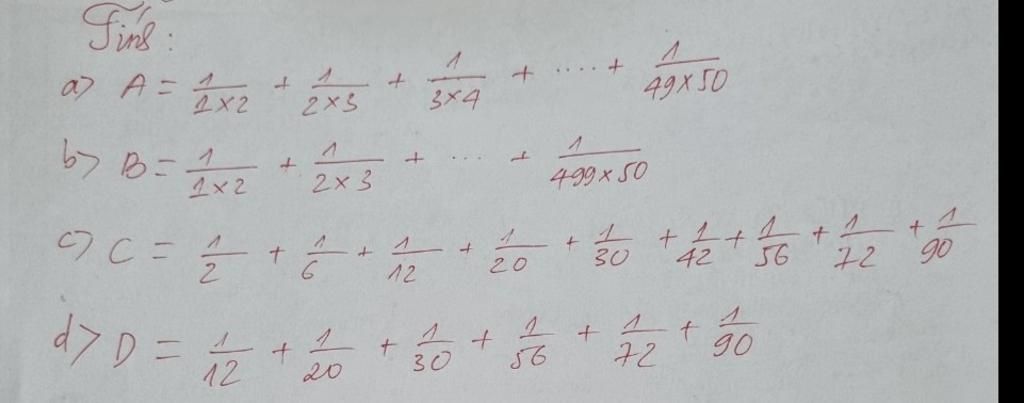 Tính:
a) A = 1/1×2 + 1/2×3 + 1/3×4 + .... + 1/49×50
b) B = 1/1×2 + 1/2×3 + ... + 1/499×50
c) C = 1/2 + 1/6 + 1/12 + 1/20 + 1/30 + 1/42 + 1/56 + 1/72 + 1/90
d) D = 1/12 + 1/20 + 1/30 + 1/56 + 1/72 + 1/90